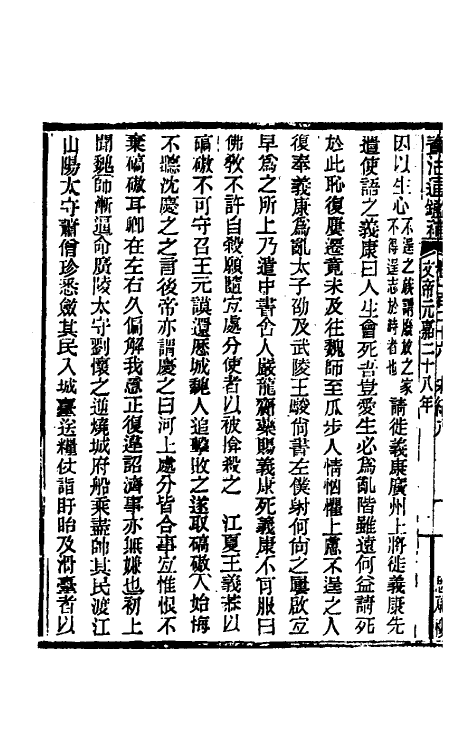 資治通鑑補 卷一百二十六 文帝元嘉二十八年 宋紀八
因以生心不逞之族謂廢放之家不得逞志於時者也請徙義康廣州上將徙義康先
遣使語之義康曰人生會死吾豈愛生必為亂階雖遠何益請死
於此恥復屢遷竟未及往魏師至瓜步人情恟懼上慮不逞之人
復奉義康為亂太子劭及武陵王駿尙書左僕射何尙之屢啟宜
早為之所上乃遣中書舍人嚴龍齎藥賜義康死義康不肯服曰
佛教不許自殺願隨宜處分使者以被揜殺之　江夏王義恭以
碻磝不可守召王元謨還歷城魏人追擊敗之遂取碻磝入始悔
不聽沈慶之之言後帝亦謂慶之曰河上處分皆合事宜惟恨不
棄碻磝耳卿在左右久偏解我意正復違詔濟事亦無嫌也初上
聞魏師漸逼命廣陵太守劉懷之逆燒城府船乘盡帥其民渡江
山陽太守蕭僧珍悉斂其民入城臺送糧仗詣盱眙及滑臺者以